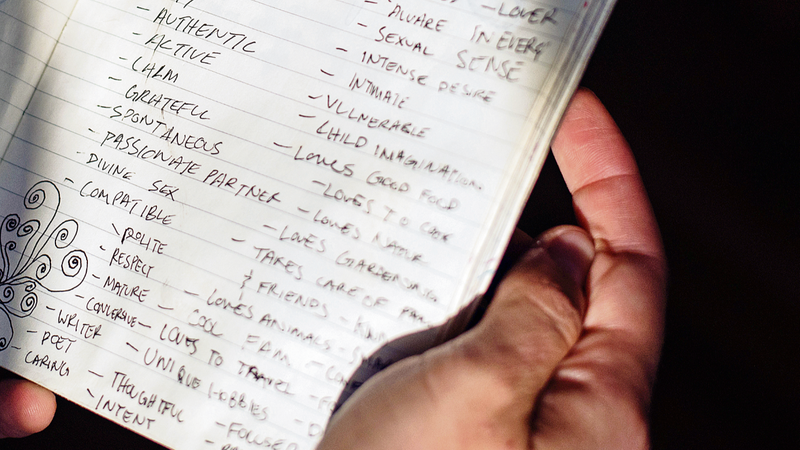 - AUTHENTIC
- ACTIVE
- CALM
- GRATEFUL
- SPONTANEOUS
- PASSIONATE PARTNER
- DIVINE SEX
- COMPATIBLE
- POLITE
- RESPECT
- MATURE
- CONVERSE
- WRITER
- POET
- CARING
- LOVER
- AWARE IN EVERY
- SEXUAL SENSE
- INTENSE DESIRE
- INTIMATE
- VULNERABLE
- CHILD IMAGINATION
- LOVES GOOD FOOD
- LOVES TO COOK
- LOVES NATURE
- LOVES GARDENING
- TAKES CARE OF
& FRIENDS
- LOVES ANIMALS
- COOL
- LOVES TO TRAVEL
- UNIQUE HOBBIES
- THOUGHTFUL
- INTENT
- FOCUSED